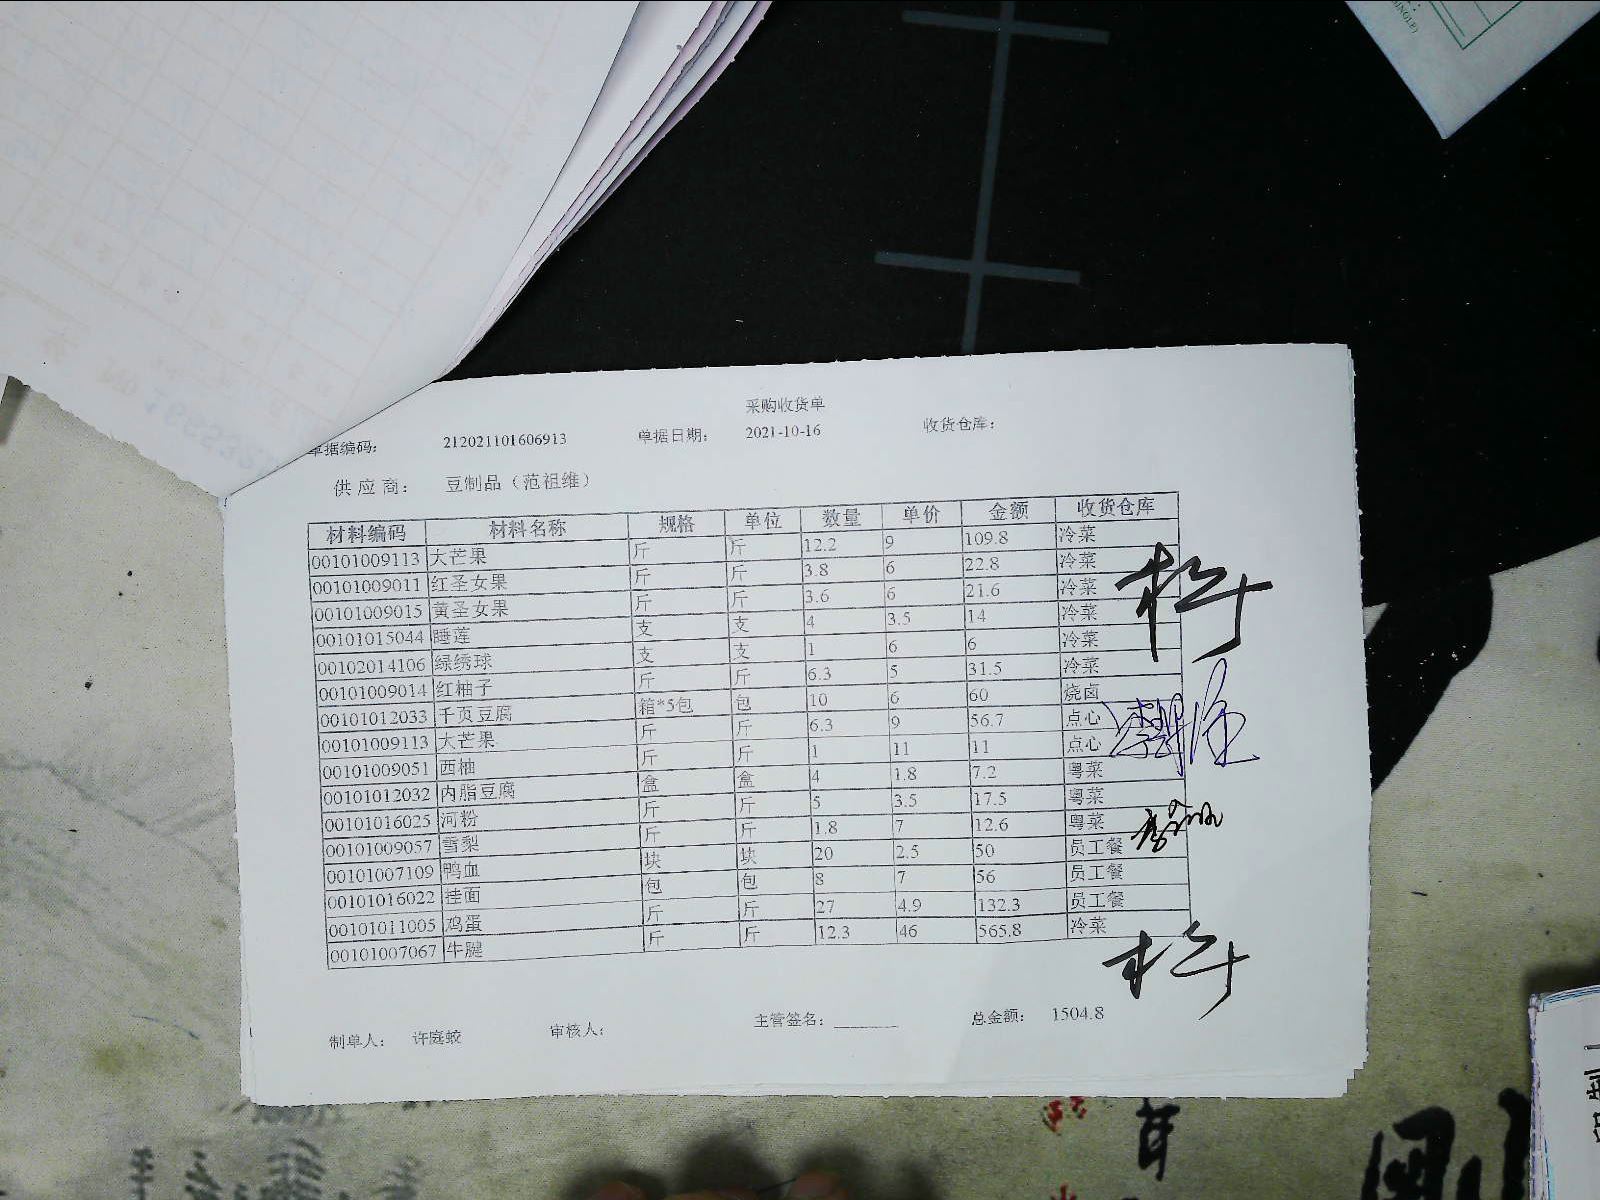 采购收货单
单据编码: 212021101606913 单据日期: 2021-10-16 收货仓库:
供应商: 豆制品（范祖维）
材料编码 材料名称 规格 单位 数量 单价 金额 收货仓库
00101009113 大芒果 斤 斤 12.2 9 109.8 冷菜
00101009011 红圣女果 斤 斤 3.8 6 22.8 冷菜
00101009015 黄圣女果 斤 斤 3.6 6 21.6 冷菜
00101015044 睡莲 支 支 4 3.5 14 冷菜
00102014106 绿绣球 支 支 1 6 6 冷菜
00101009014 红柚子 斤 斤 6.3 5 31.5 冷菜
00101012033 千页豆腐 箱*5包 包 10 6 60 烧卤
00101009113 大芒果 斤 斤 6.3 9 56.7 点心
00101009051 西柚 斤 斤 1 11 11 点心
00101012032 内脂豆腐 盒 盒 4 1.8 7.2 粤菜
00101016025 河粉 斤 斤 5 3.5 17.5 粤菜
00101009057 雪梨 斤 斤 1.8 7 12.6 粤菜
00101007109 鸭血 块 块 20 2.5 50 员工餐
00101016022 挂面 包 包 8 7 56 员工餐
00101011005 鸡蛋 斤 斤 27 4.9 132.3 员工餐
00101007067 牛腱 斤 斤 12.3 46 565.8 冷菜
制单人: 许庭蛟 审核人: 主管签名: 总金额: 1504.8